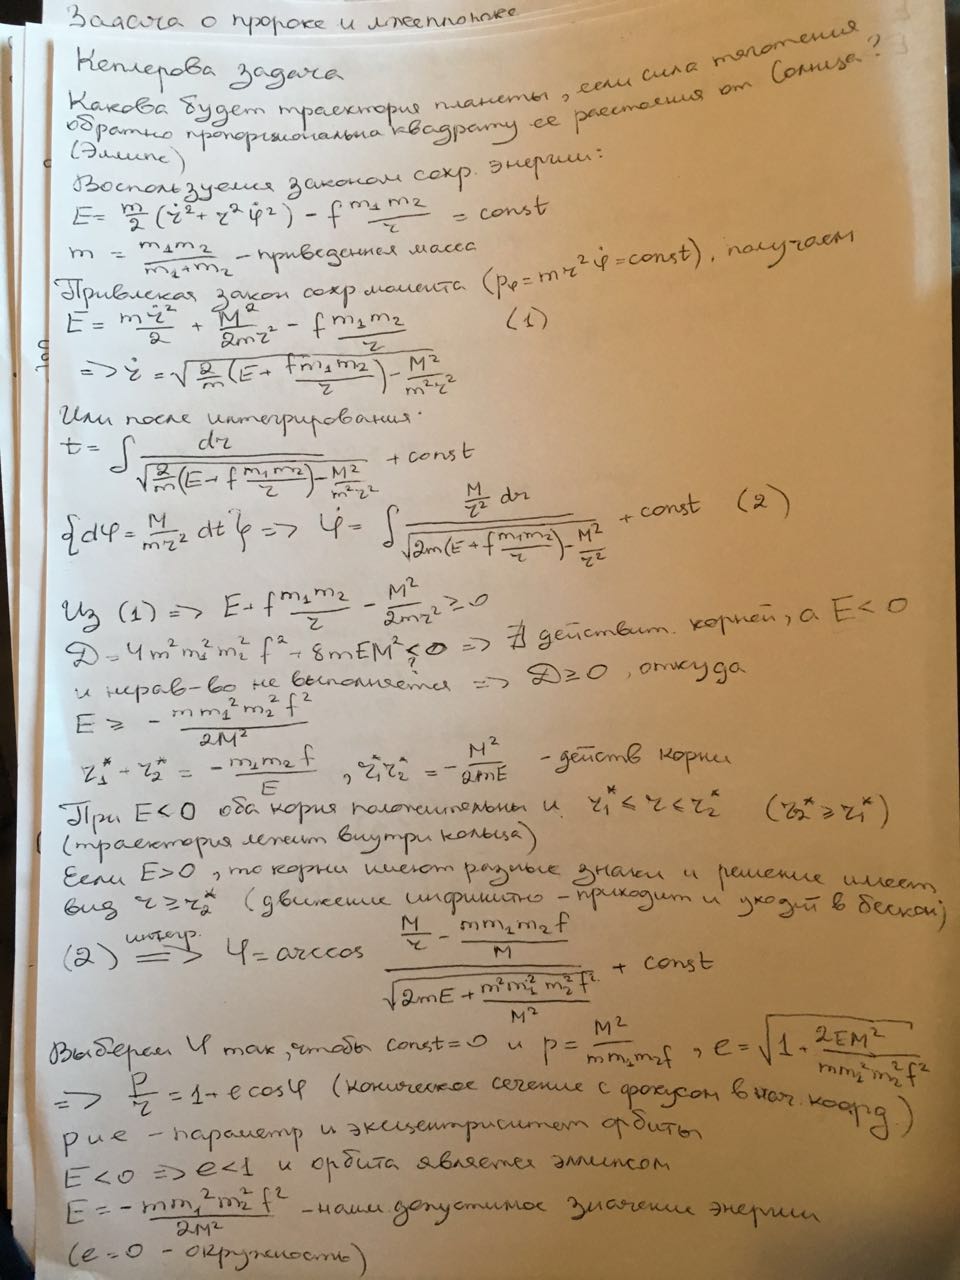 Задача о пророке и лжепророке
Кеплерова задача
Какова будет траектория планеты, если сила тяготения
обратно пропорциональна квадрату ее расстоения от Солнца?
(Эллипс)
Воспользуемся законом сохр. энергии:
E = m/2 (ṙ² + r² φ̇²) - f m₁m₂/r = const
m = m₁m₂/(m₁+m₂) - приведенная масса
Привлекая закон сохр момента (pφ = mr²φ̇ = const), получаем
E = mṙ²/2 + M²/2mr² - f m₁m₂/r (1)
=> ṙ = √(2/m (E + f m₁m₂/r) - M²/m²r²)
Или после интегрирования:
t = ∫ dr/√(2/m (E + f m₁m₂/r) - M²/m²r²) + const
{dφ = M/mr² dt} => φ = ∫ (M/r² dr)/√(2m(E + f m₁m₂/r) - M²/r²) + const (2)
Из (1) => E + f m₁m₂/r - M²/2mr² ≥ 0
D = 4m²m₁²m₂²f² + 8mEM² < 0 => ∄ действит. корней, а E < 0
?
и нерав-во не выполняется => D ≥ 0, откуда
E ≥ - mm₁²m₂²f²/2M²
r₁* + r₂* = - m₁m₂f/E, r₁*r₂* = - M²/2mE - действ корни
При E < 0 оба корня положительны и r₁* ≤ r ≤ r₂* (r₂* ≥ r₁*)
(траектория лежит внутри кольца)
Если E > 0, то корни имеют разные знаки и решение имеет
вид r ≥ r₂* (движение инфинитно - приходит и уходит в бескон)
(2) интегр. => φ = arccos (M/r - mm₁m₂f/M)/√(2mE + m²m₁²m₂²f²/M²) + const
Выберем φ так, чтобы const = 0 и p = M²/mm₁m₂f, e = √(1 + 2EM²/mm₁²m₂²f²)
=> p/r = 1 + e cosφ (коническое сечение с фокусом в нач. коорд.)
p и e - параметр и эксцентриситет орбиты
E < 0 => e < 1 и орбита является эллипсом
E = - mm₁²m₂²f²/2M² - наим. допустимое значение энергии
(e = 0 - окружность)